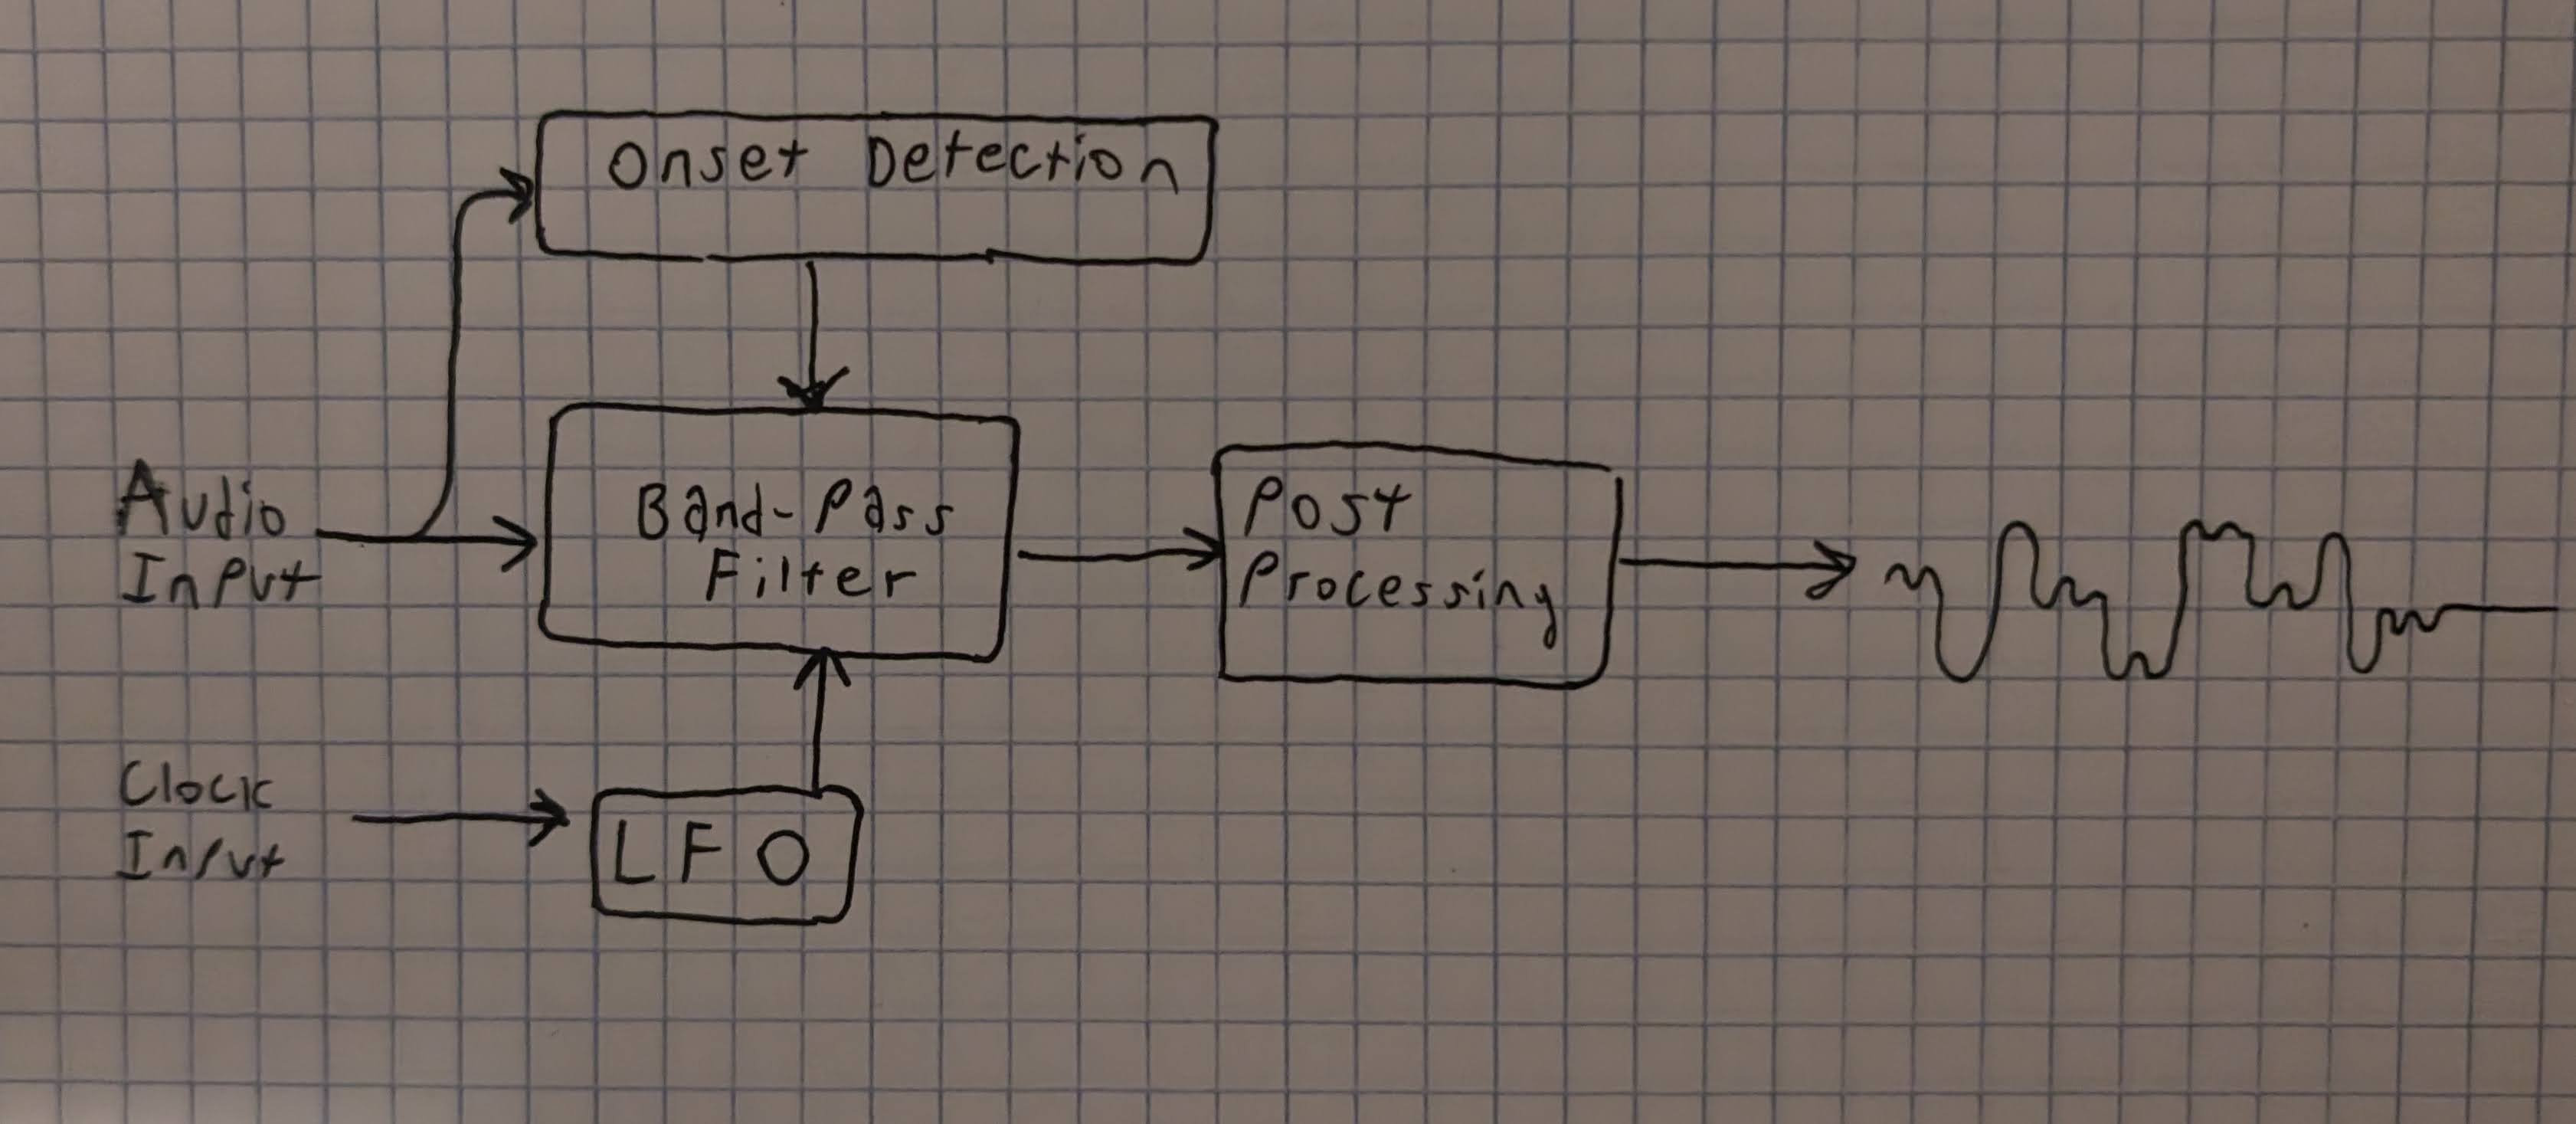 Onset Detection
Audio
Input
Band-Pass
Filter
Post
Processing
Clock
Input
LFO